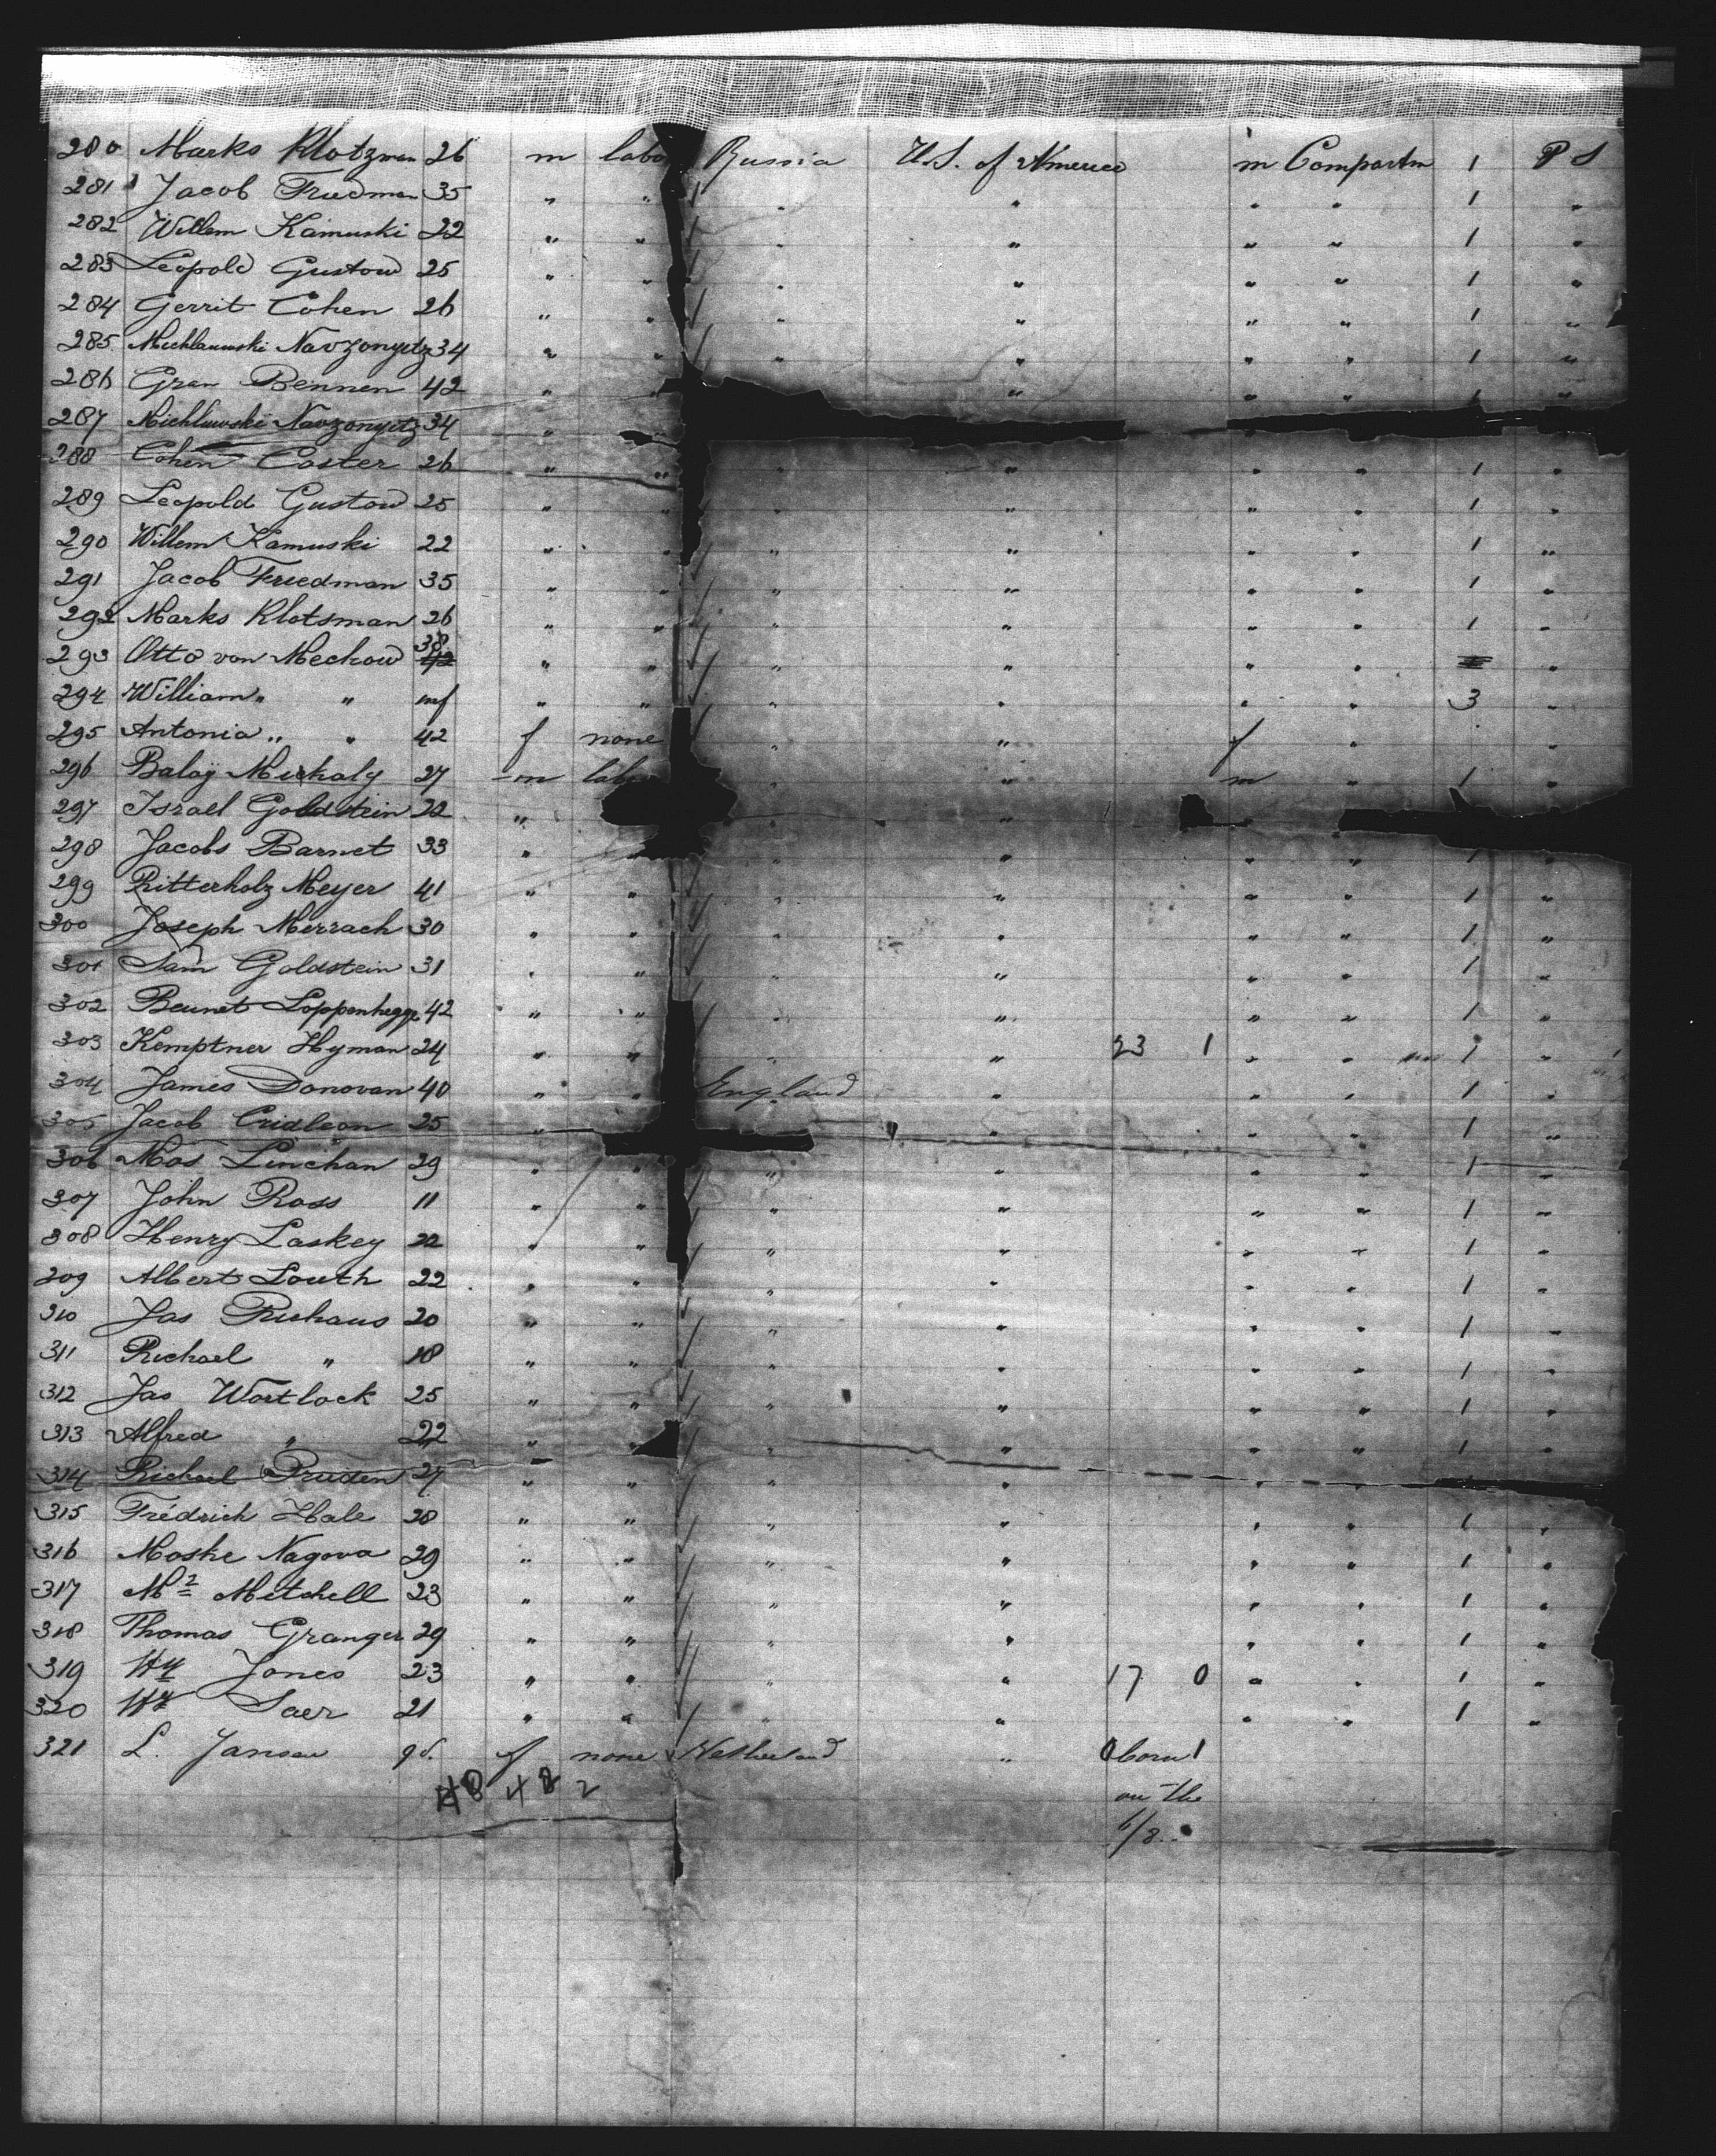 280 Marks Klotzman 26 m labo Russia U.S. of America m Compartm 1 P S
281 Jacob Friedman 35 " " " " " " 1 "
282 Willem Kamuski 22 " " " " " " 1 "
283 Leopold Gustow 25 " " " " " " 1 "
284 Gerrit Cohen 26 " " " " " " 1 "
285 Navzonyitz 34 " " " " " " 1 "
286 Gran Bennen 42 " " " " " 1 "
287 Navzonyitz 34 " "
288 Cohen Coster 26 " " " " " " 1 "
289 Leopold Gustow 25 " " " " " " 1 "
290 Willem Kamuski 22 " " " " " " 1 "
291 Jacob Friedman 35 " " " " " " 1 "
292 Marks Klotsman 26 " " " " " " 1 "
293 Otto von Mechow 38 " " " " " " "
294 William " " inf " " " " " " 3 "
295 Antonia " " 42 f none " " f " "
296 Balaÿ Michaly 27 m lab " " m " 1 "
297 Israel Goldstein 22 " " " "
298 Jacobs Barnet 33 " " " " " 1 "
299 Ritterholz Meyer 41 " " " " " " 1 "
300 Joseph Merrach 30 " " " " " " 1 "
301 Sam Goldstein 31 " " " " " " 1 "
302 Beunet Loppenhegge 42 " " " " " " 1 "
303 Kemptner Hyman 24 " " " " 23 1 " " 1 "
304 James Donovan 40 " " England " " " 1 "
305 Jacob Cridleon 25 " " " " 1 "
306 Mos Linehan 29 " " " " " " 1 "
307 John Ross 11 " " " " " " 1 "
308 Henry Laskey 22 " " " " " " 1 "
309 Albert Louth 22 " " " " " " 1 "
310 Jas Richaus 20 " " " " " " 1 "
311 Richael " 18 " " " " " " 1 "
312 Jas Wortlock 25 " " " " " " 1 "
313 Alfred " 22 " " " " " 1 "
314 Richael Pruden 27 " " " " " "
315 Frédrich Hale 28 " " " " " " 1 "
316 Moshe Nagova 29 " " " " " " 1 "
317 Mitchell 23 " " " " " " 1 "
318 Thomas Granger 29 " " " " " " 1 "
319 Hy Jones 23 " " " " 17 0 " " 1 "
320 Hy Saer 21 " " " " " " 1 "
321 L. Jansen 9d. f none Netherland " 0 born 1
48 48 2
on the
6/8